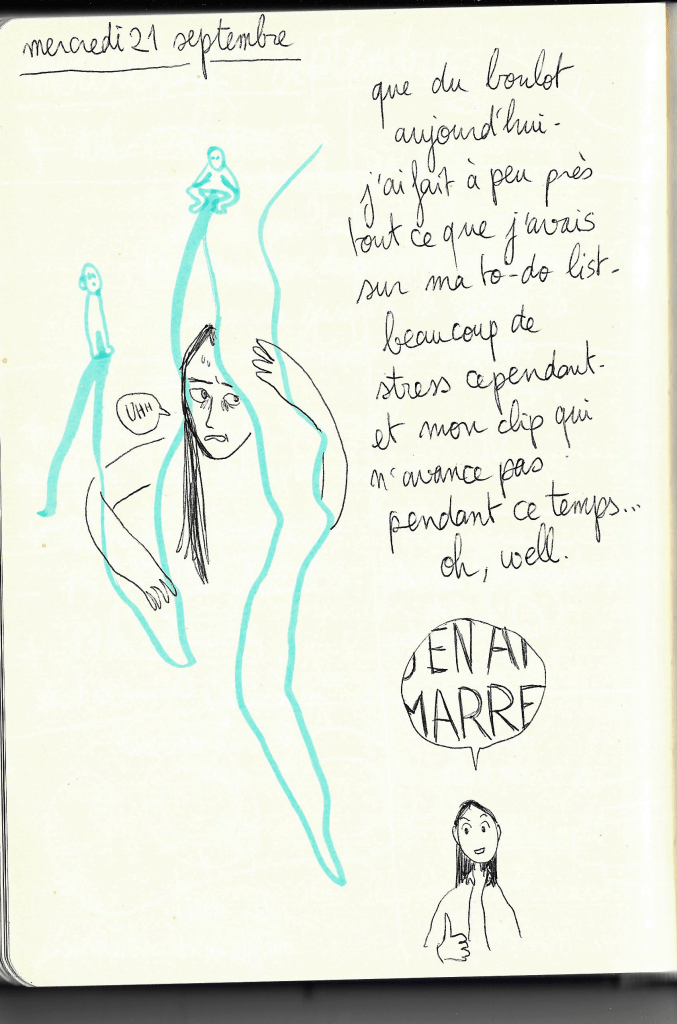 mercredi 21 septembre
que du boulot
aujourd'hui -
j'ai fait à peu près
tout ce que j'avais
sur ma to-do list -
beaucoup de
stress cependant -
et mon clip qui
n'avance pas
pendant ce temps...
oh, well.
UHH
J'EN AI
MARRE